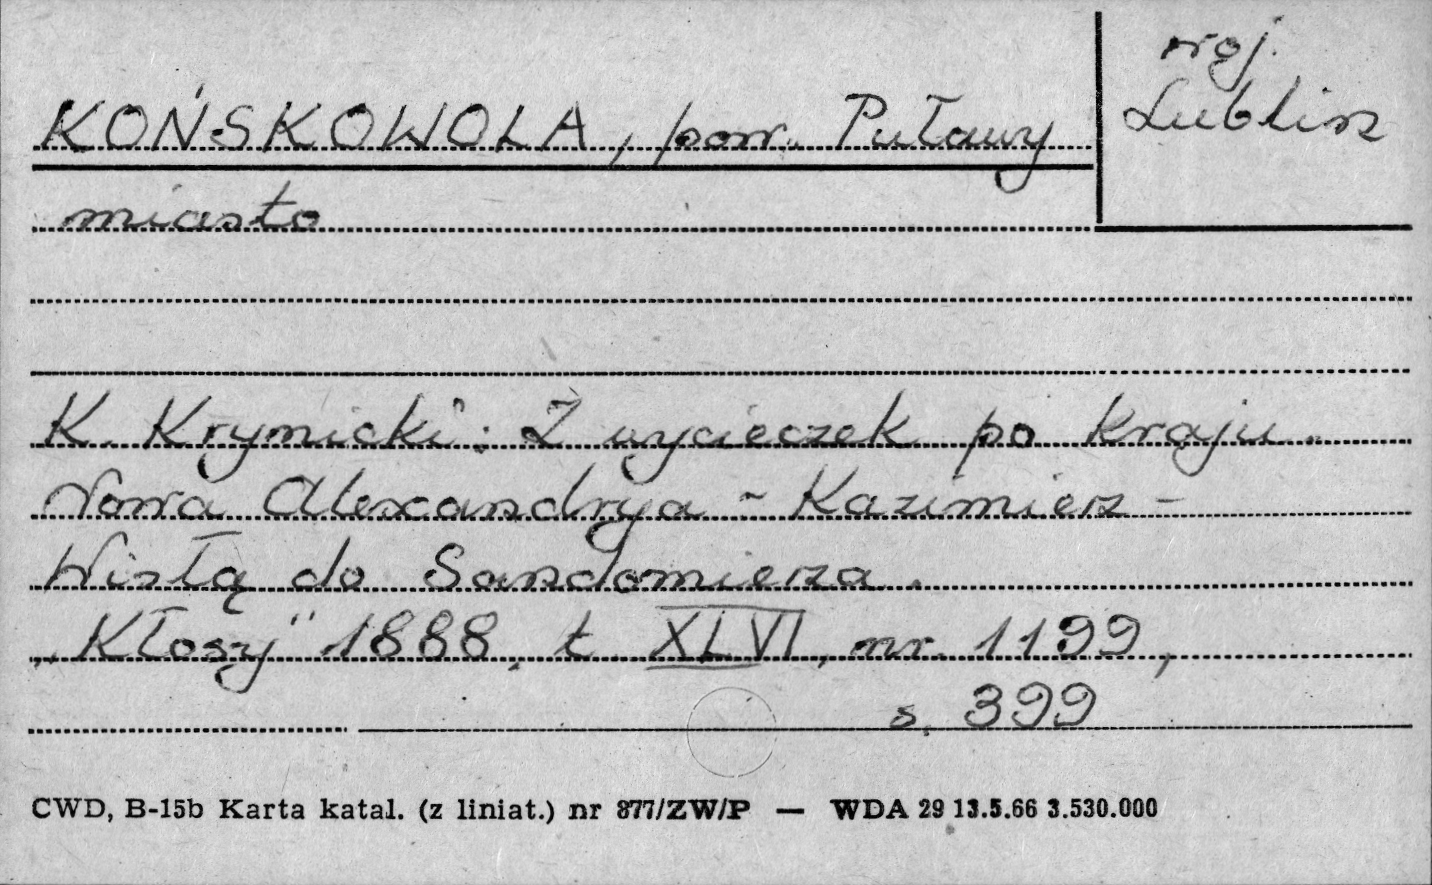 woj.
Lublin
KOŃSKOWOLA, pow. Puławy
miasto
K. Krynicki: Z wycieczek po kraju.
Nowa Alexandrya - Kazimierz -
Wisłą do Sandomierza.
„Kłosy" 1888, t. XLVI, nr. 1199,
s. 399
CWD, B-15b Karta katal. (z liniat.) nr 877/ZW/P — WDA 29 13.5.66 3.530.000